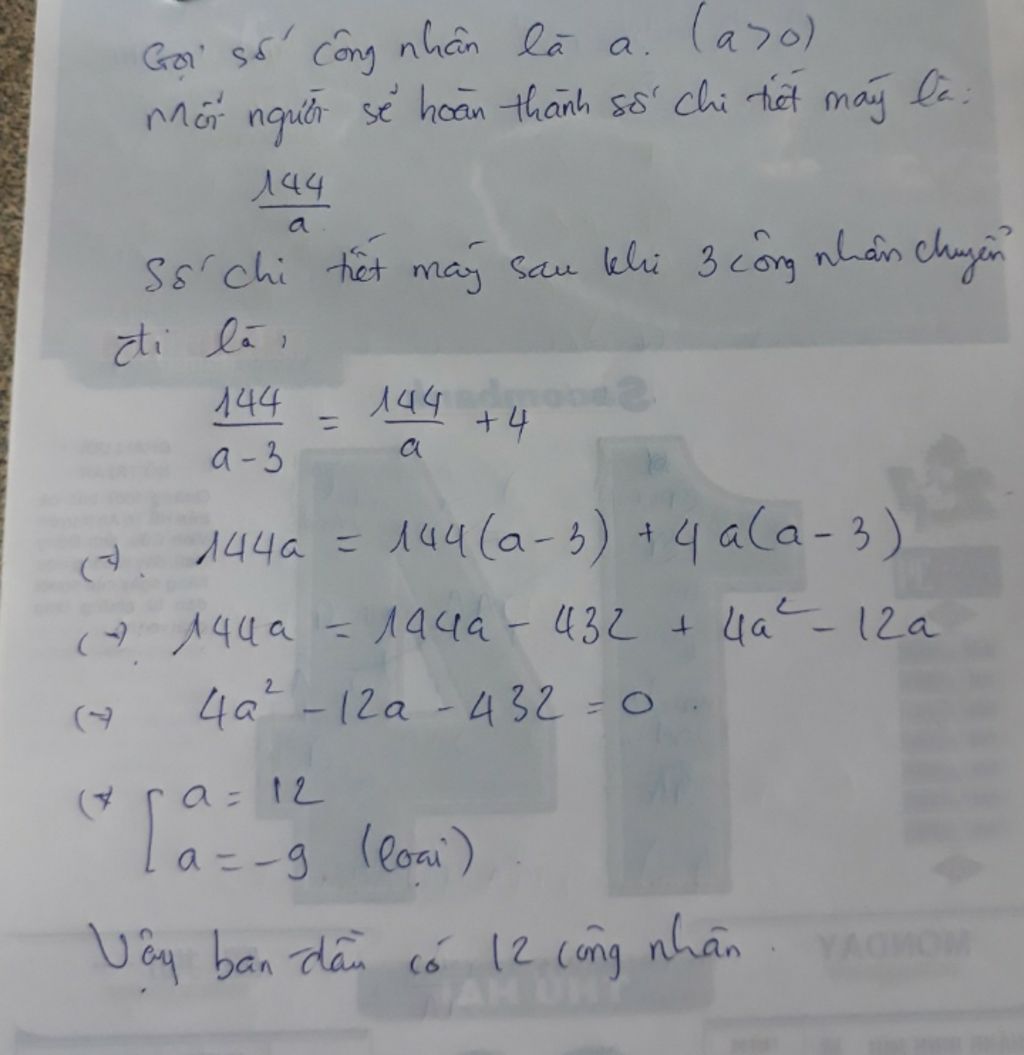 Gọi số công nhân là a. (a>0)
Mỗi người sẽ hoàn thành số chi tiết máy là:
144/a
Số chi tiết máy sau khi 3 công nhân chuyển
đi là,
144/(a-3) = 144/a + 4
(→). 144a = 144(a-3) + 4a(a-3)
(→). 144a = 144a - 432 + 4a² - 12a
(→) 4a² - 12a - 432 = 0.
(→ [ a = 12
a = -9 (loại).
Vậy ban đầu có 12 công nhân.
MONDAY
THỨ HAI